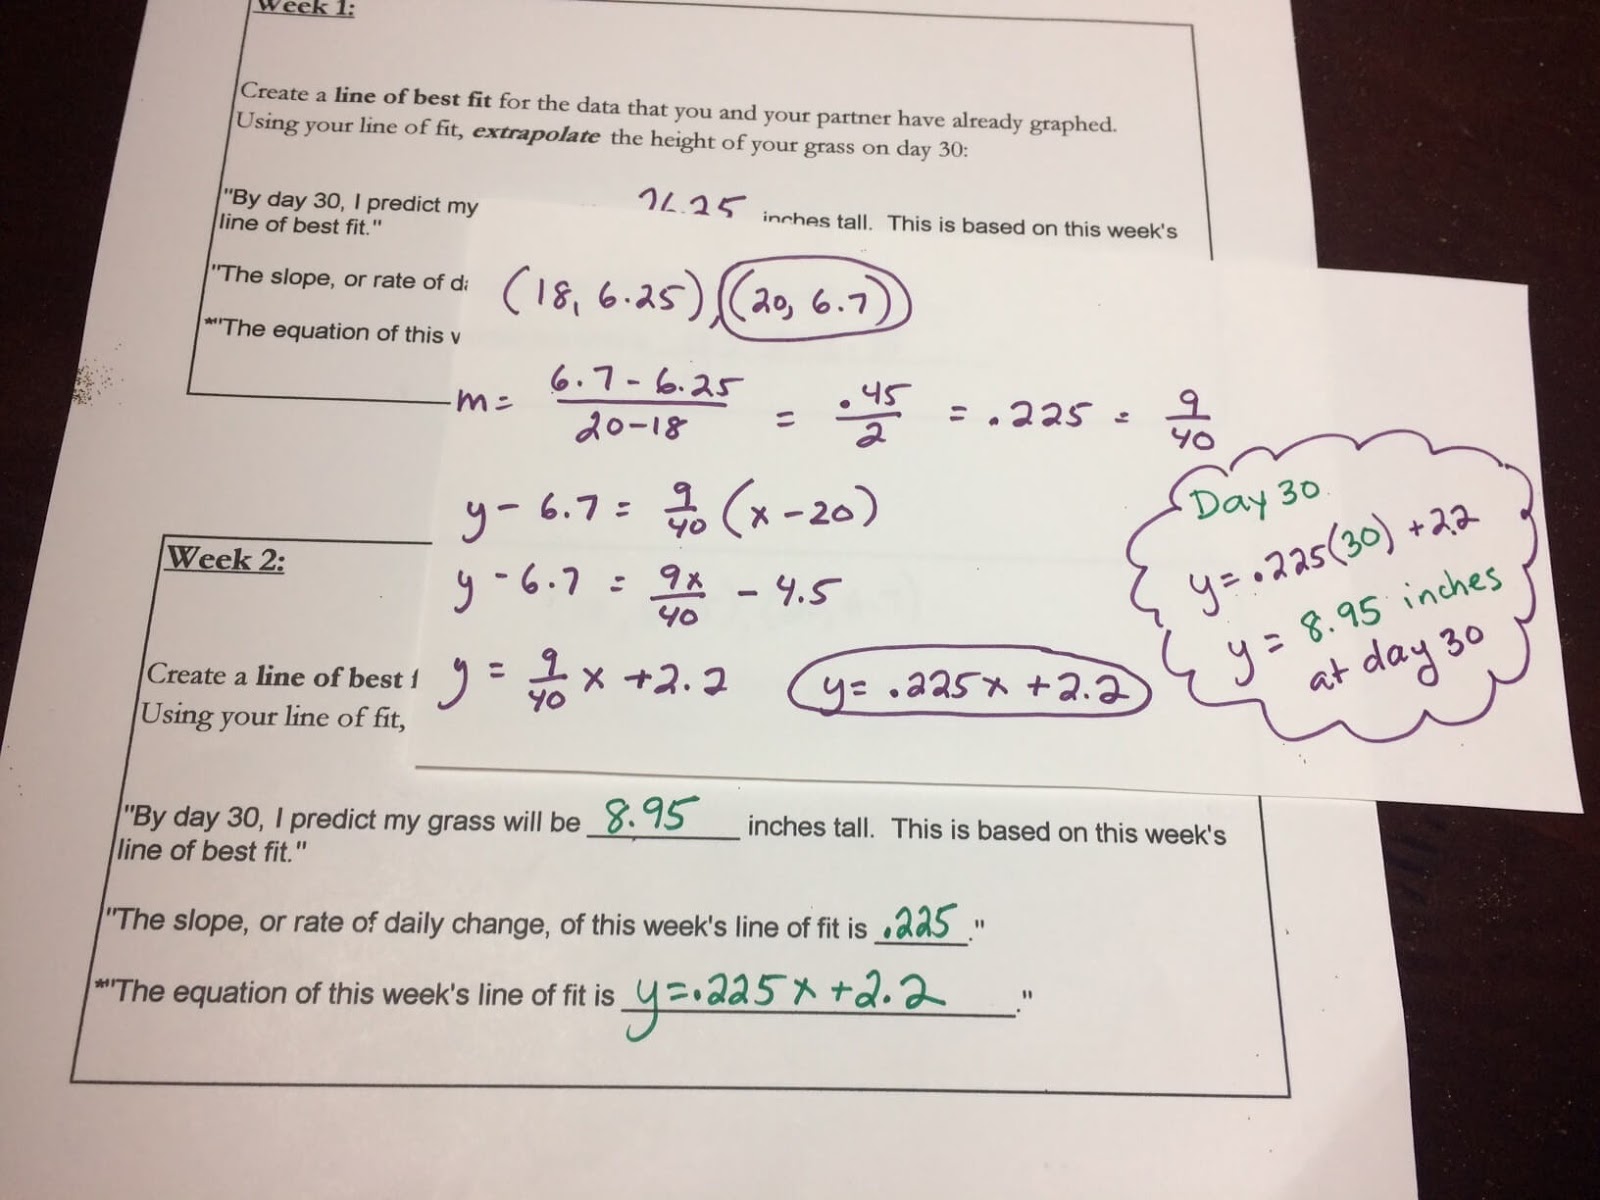 Week 1:
Create a line of best fit for the data that you and your partner have already graphed.
Using your line of fit, extrapolate the height of your grass on day 30:
"By day 30, I predict my inches tall. This is based on this week's
line of best fit."
"The slope, or rate of
*"The equation of this
(18, 6.25), (20, 6.7)
m = 6.7 - 6.25 / 20 - 18 = .45 / 2 = .225 = 9/40
y - 6.7 = 9/40 (x - 20)
y - 6.7 = 9x/40 - 4.5
y = 9/40 x + 2.2 y = .225x + 2.2
Day 30
y = .225(30) + 2.2
y = 8.95 inches
at day 30
Week 2:
Create a line of best
Using your line of fit,
"By day 30, I predict my grass will be 8.95 inches tall. This is based on this week's
line of best fit."
"The slope, or rate of daily change, of this week's line of fit is .225."
*"The equation of this week's line of fit is y = .225x + 2.2."